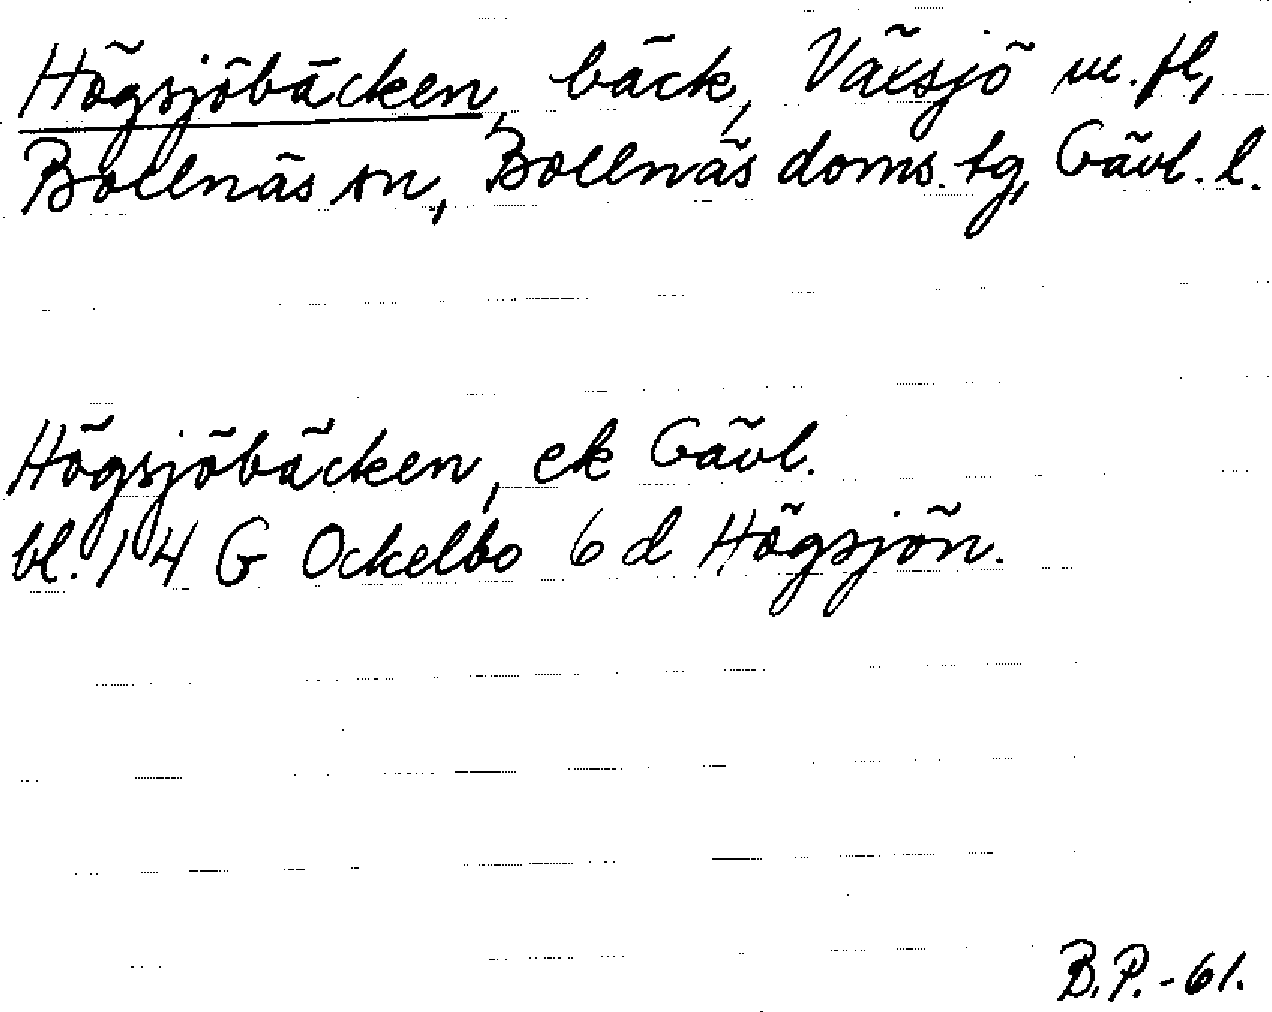 Högsjöbäcken, bäck, Växsjö m.fl,
Bollnäs sn, Bollnäs doms. tg, Gävl. l.
Högsjöbäcken, ek Gävl.
bl. 14 G Ockelbo 6 d Högsjön.
B.P.-61.